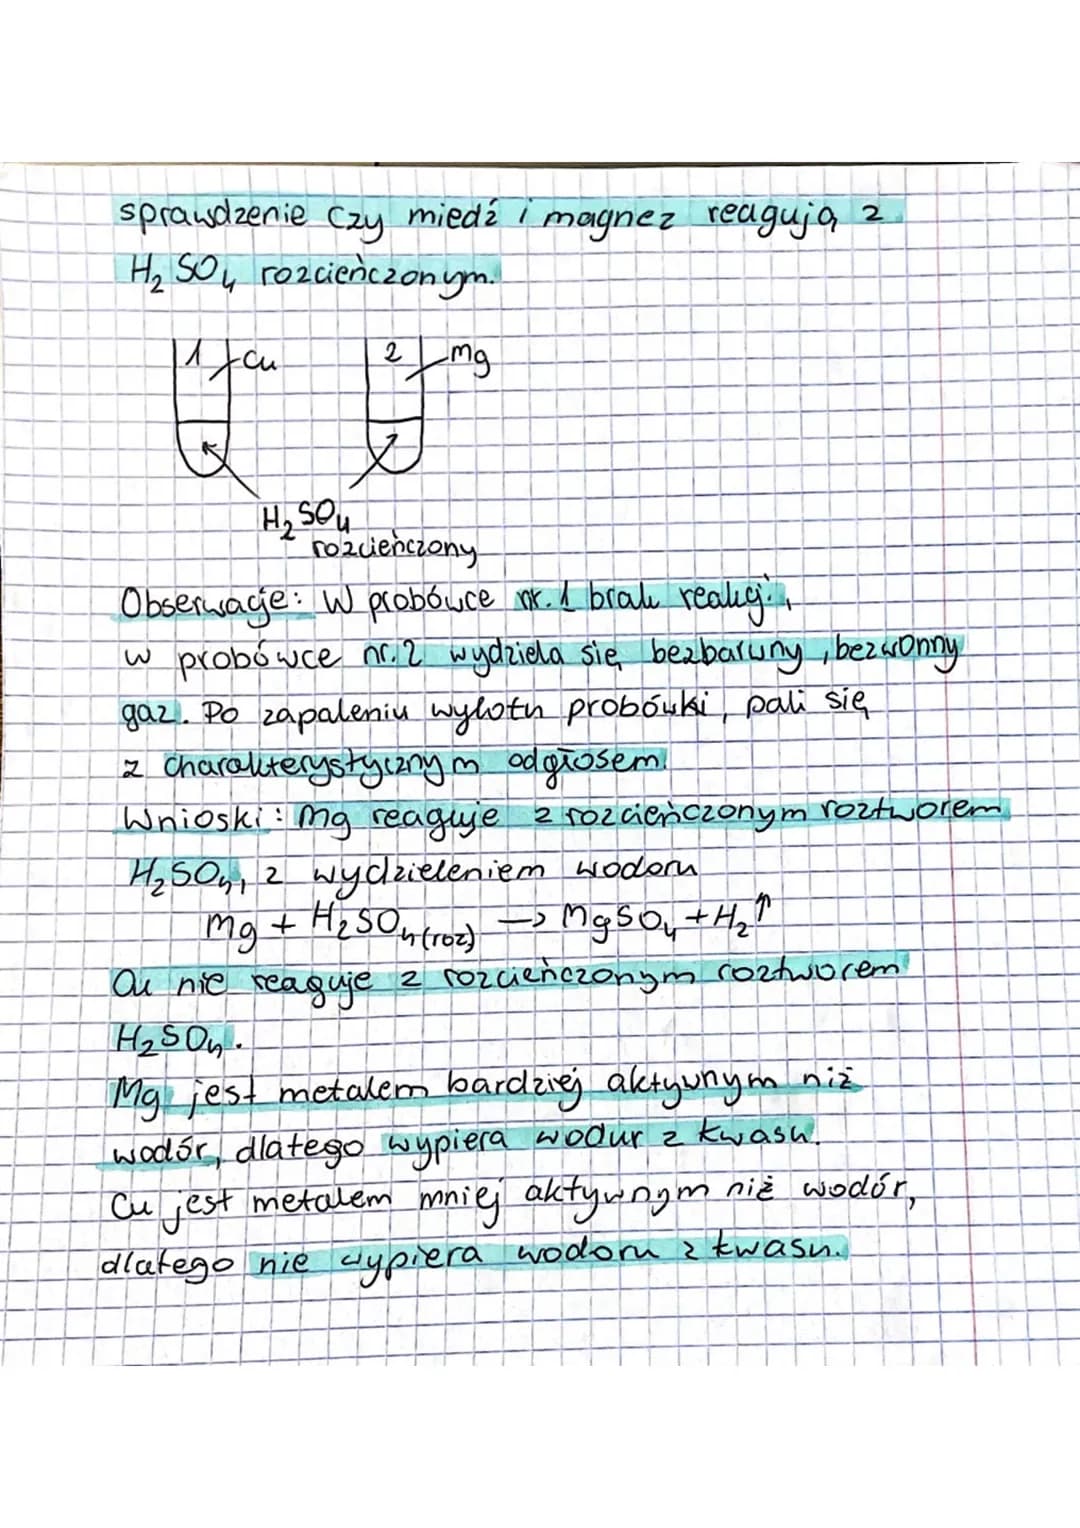 sprawdzenie czy miedź i magnez reagują z
H₂SO₄ rozcieńczonym.
1 Cu 2 Mg
H₂SO₄
rozcieńczony
Obserwacje: W probówce nr. 1 brak reakcji,
w probówce nr. 2 wydziela się bezbarwny, bezwonny
gaz. Po zapaleniu wylotu probówki, pali się
z charakterystycznym odgłosem.
Wnioski: Mg reaguje z rozcieńczonym roztworem
H₂SO₄, z wydzieleniem wodoru
Mg + H₂SO₄(roz) → MgSO₄ + H₂↑
Cu nie reaguje z rozcieńczonym roztworem
H₂SO₄.
Mg jest metalem bardziej aktywnym niż
wodór, dlatego wypiera wodur z kwasu.
Cu jest metalem mniej aktywnym niż wodór,
dlatego nie wypiera wodoru z kwasu.